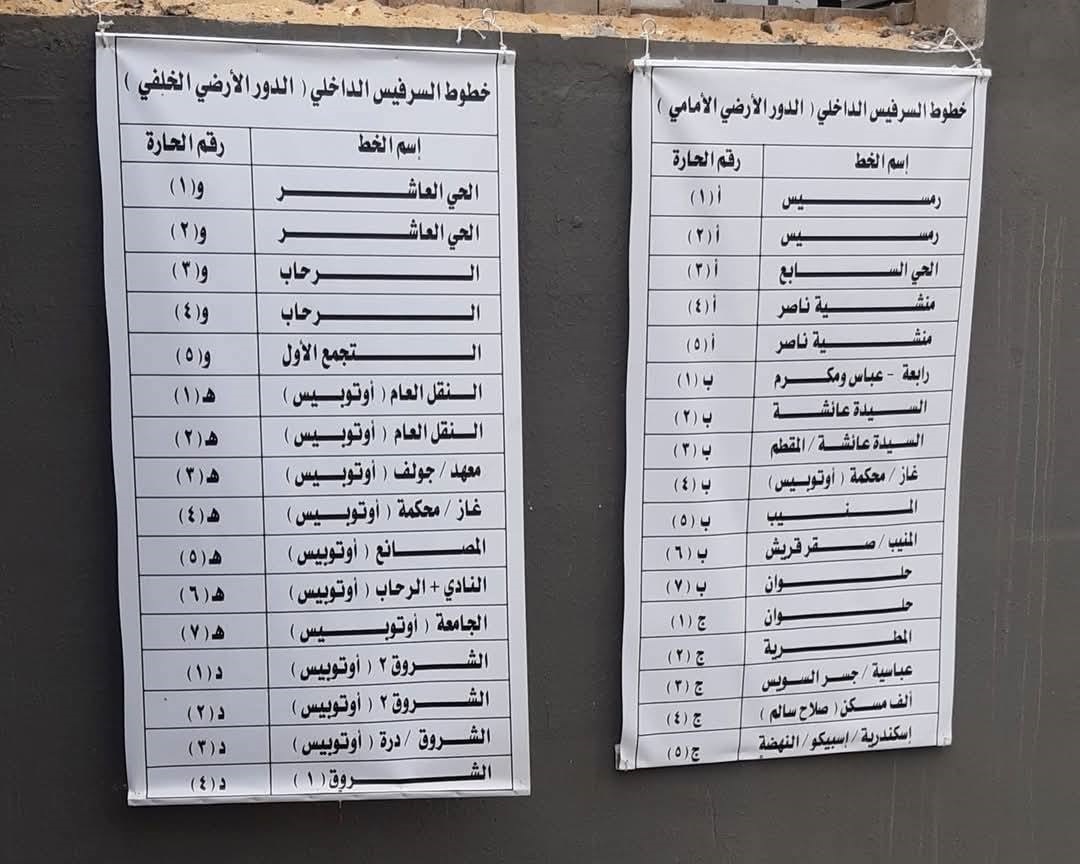 خطوط السرفيس الداخلي ( الدور الأرضي الأمامي )
إسم الخط رقم الحارة
رمسيس أ (١)
رمسيس أ (٢)
الحي السابع أ (٣)
منشية ناصر أ (٤)
منشية ناصر أ (٥)
رابعة - عباس ومكرم ب (١)
السيدة عائشة ب (٢)
السيدة عائشة / المقطم ب (٣)
غاز / محكمة ( أوتوبيس ) ب (٤)
المنيب ب (٥)
المنيب / صقر قريش ب (٦)
حلوان ب (٧)
حلوان ج (١)
المطرية ج (٢)
عباسية / جسر السويس ج (٣)
ألف مسكن ( صلاح سالم ) ج (٤)
إسكندرية / إسبيكو / النهضة ج (٥)
خطوط السرفيس الداخلي ( الدور الأرضي الخلفي )
إسم الخط رقم الحارة
الحي العاشر و (١)
الحي العاشر و (٢)
الرحاب و (٣)
الرحاب و (٤)
التجمع الأول و (٥)
النقل العام ( أوتوبيس ) هـ (١)
النقل العام ( أوتوبيس ) هـ (٢)
معهد / جولف ( أوتوبيس ) هـ (٣)
غاز / محكمة ( أوتوبيس ) هـ (٤)
المصانع ( أوتوبيس ) هـ (٥)
النادي + الرحاب ( أوتوبيس ) هـ (٦)
الجامعة ( أوتوبيس ) هـ (٧)
الشروق ٢ ( أوتوبيس ) د (١)
الشروق ٢ ( أوتوبيس ) د (٢)
الشروق / درة ( أوتوبيس ) د (٣)
الشروق ( ١ ) د (٤)